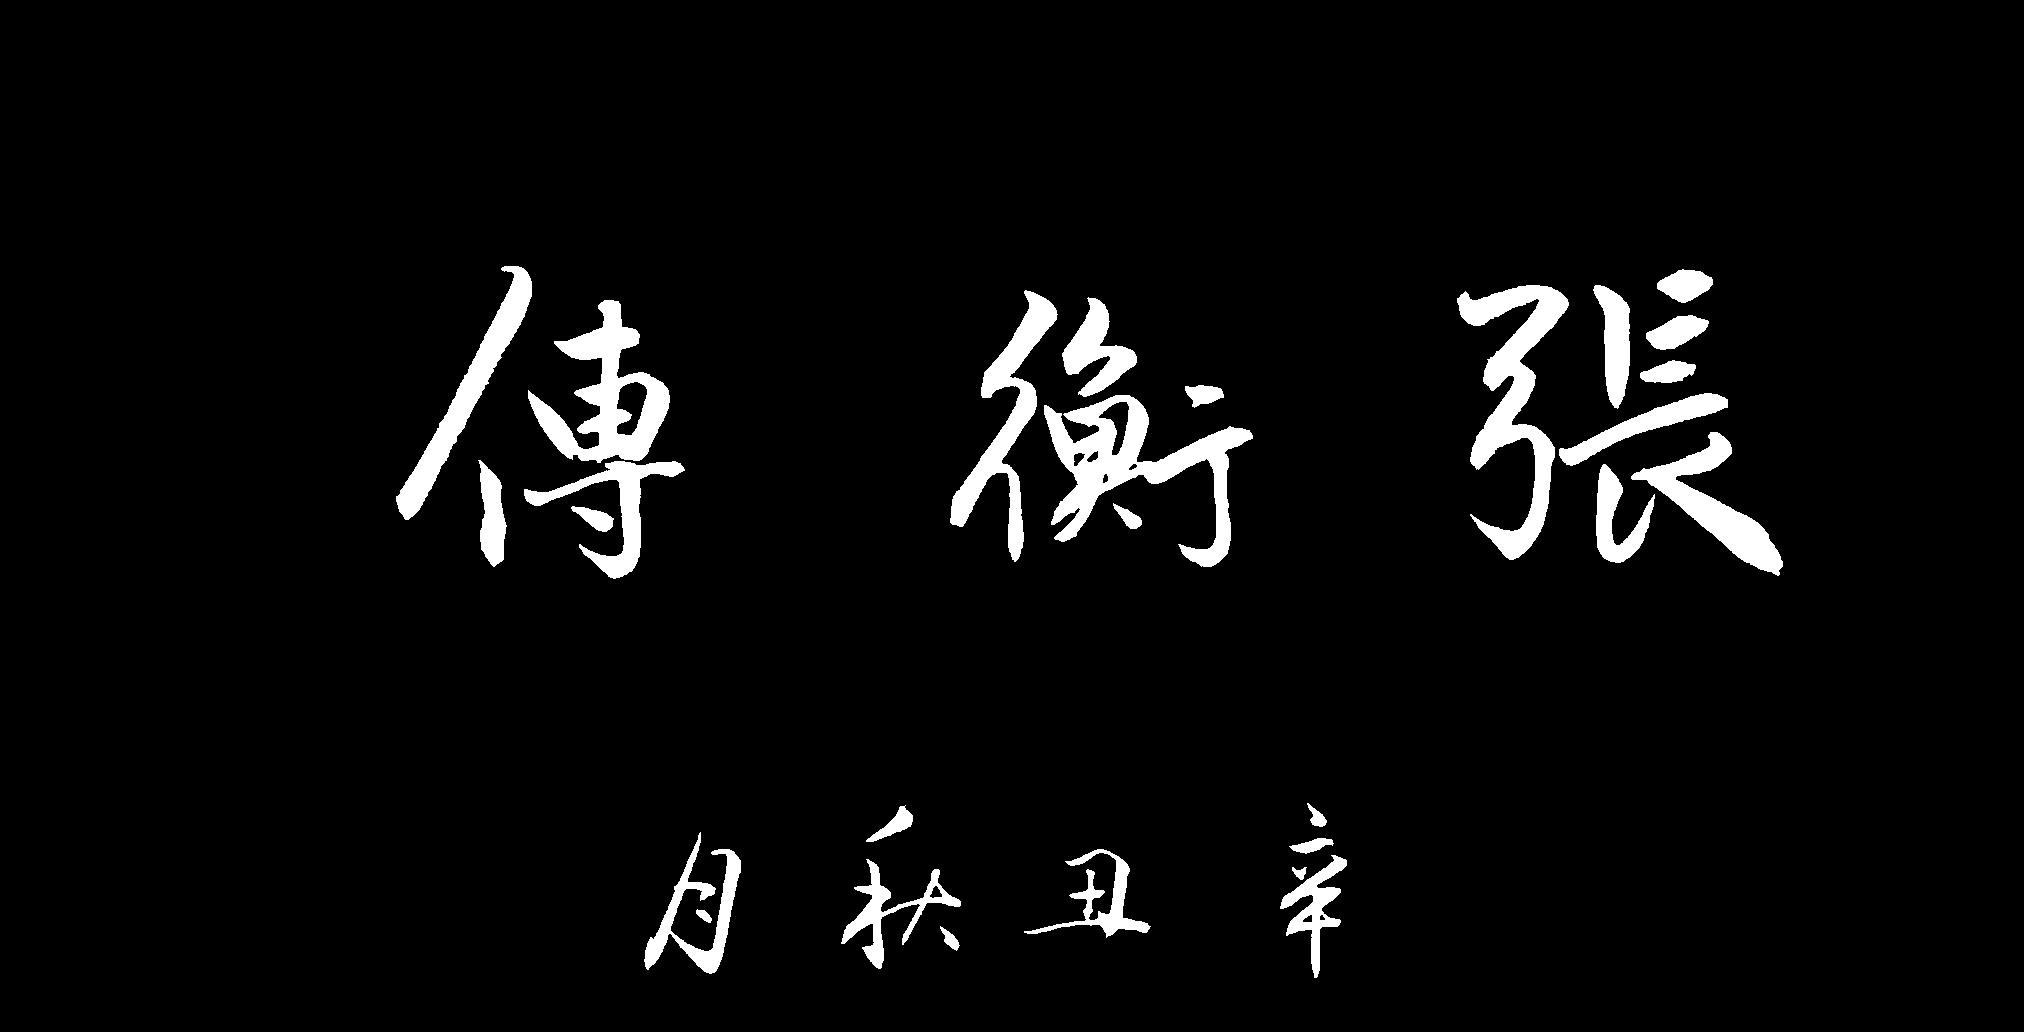 張衡傳
辛丑秋月